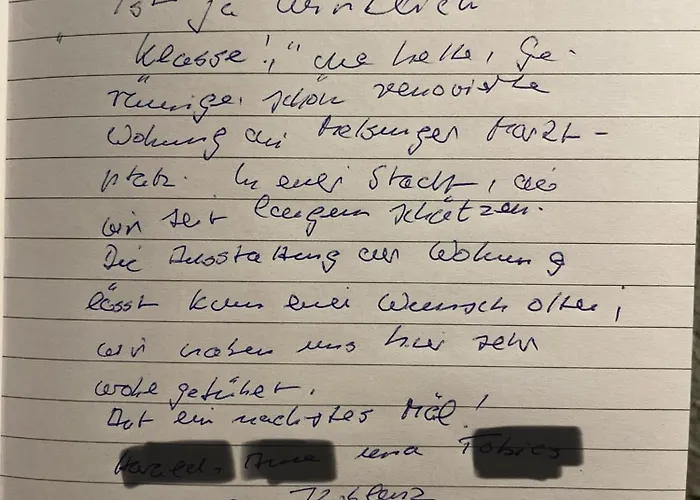 ist ja wirklich
"Klasse!", die helle, ge-
räumige, schön renovierte
Wohnung am Melsunger Markt-
platz. In einer Stadt, die
wir seit langem schätzen.
Die Ausstattung der Wohnung
lässt kaum einen Wunsch offen,
wir haben uns hier sehr
wohl gefühlt.
Auf ein nächstes Mal!
und